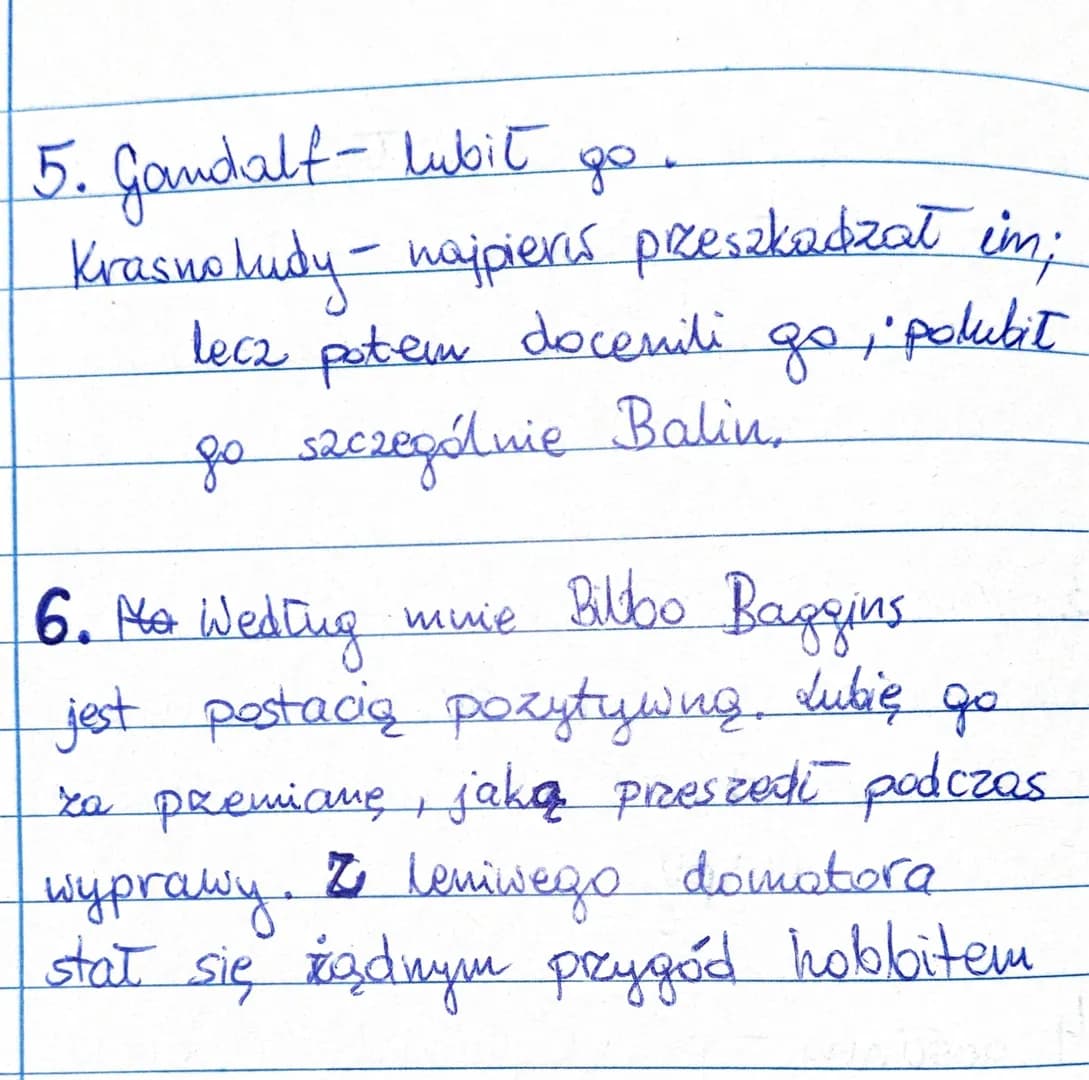 5. Gandalf - lubił go.
Krasnoludy - najpierw przeszkadzał im;
lecz potem docenili go, polubił
go szczególnie Balin.
6. Na Według mnie Bilbo Baggins
jest postacią pozytywną. Lubię go
za przemianę, jaką przeszedł podczas
wyprawy. Z leniwego domatora
stał się żądnym przygód hobbitem